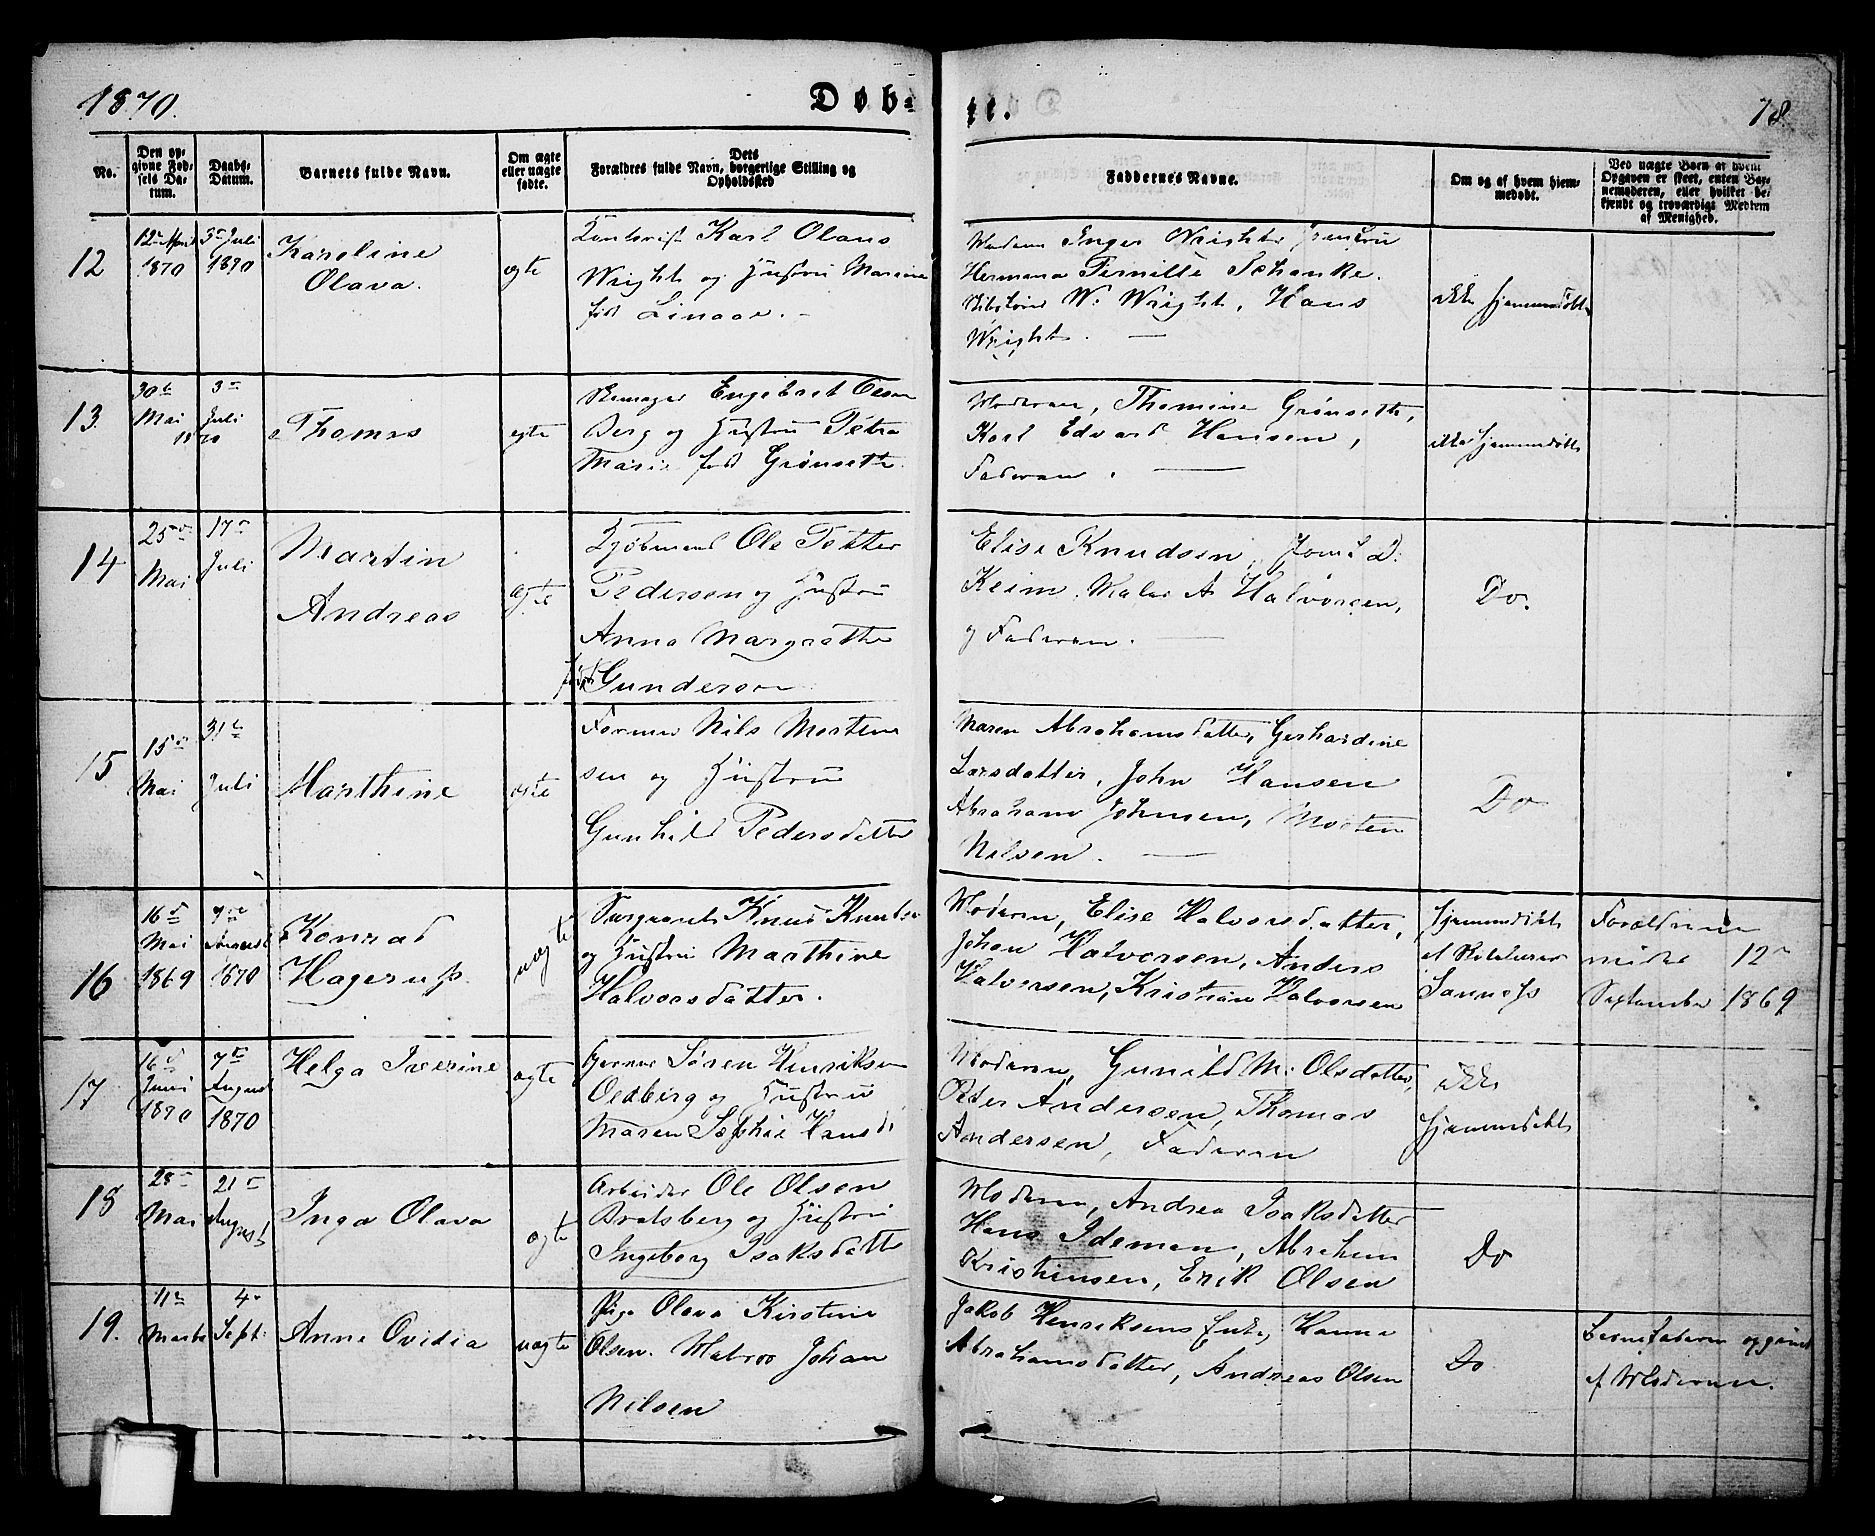 1870.
Døb-
te.
78
No.
Den op-
givne Fød-
sels Da-
tum.
Daabs-
Datum.
Barnets fulde Navn.
Om ægte
eller uægte
fødte.
Dets
Forældres fulde Navn, borgerlige Stilling og
Opholdssted
Faddernes Navne.
Om og af hvem hjem-
medøbt.
Ved uægte Børn af hvem
Opgaven er skeet, enten Bar-
nemoderen, eller hvilket be-
kjendt og troværdigt Medlem
af Menighed.
12
12te April
1870
3die Juli
1870
Karoline
Olava.
ægte
Karl Olaus
Wright og Hustru Maren
fød Linaae.
Madam Inger Wright,
Hermana Pernille Schanke.
W. Wright, Hans
Wright.
ikke hjemmedøbt
13.
30te
Mai
1870
3die
Juli
Thomas
ægte
Engebret Olsen
Berg og Hustru Petra
Marie fød Grønseth.
Moderen, Thomine Grønseth,
Karl Edvard Hansen,
Faderen.
ikke hjemmedøbt
14
25de
Mai
17de
Juli
Martin
Andreas
ægte
Kjøbmand Ole Petter
Pedersen og Hustru
Anna Margrethe
født Gundersen
Elise Knudsen, Jomf. D.
Keim, Maler A Halvorsen,
og Faderen.
Do.
15
15de
Mai
31te
Juli
Marthine
ægte
Former Nils Morten
sen og Hustru
Gunhild Pedersdatter
Maren Abrahamsdatter, Gerhardine
Larsdatter, John Hansen
Abraham Johnsen, Morten
Nilsen.
Do
16
16de
Mai
1869
7de
August
1870
Konrad
Hagerup.
uægte
Knud Knudsen
og Hustru Marthine
Halvorsdatter.
Moderen, Elise Halvorsdatter,
Johan Halvorsen, Anders
Halvorsen, Kristian Halvorsen
hjemmedøbt
af
Sannes
Forældrene
viede 12te
September 1869
17
16de
Juni
1870
7de
August
1870
Helga Iverine
ægte
Søren Henriksen
Oedberg og Hustru
Maren Sophie Hansd.
Moderen, Gunild M. Olsdatter,
Peter Andersen, Thomas
Andersen, Faderen
ikke
hjemmedøbt
18
28de
Mai
21de
August
Inga Olava
ægte
Arbeider Ole Olsen
Bratsberg og Hustru
Ingeborg Isaksdatter
Moderen, Andrea Isaksdatter
Hans Ideman, Abraham
Kristensen, Erik Olsen
Do
19.
11te
Marts
4de
Sept:
Anne Ovidia
uægte
Pige Olava Kirstine
Olsen. Matros Johan
Nilsen
Jakob Henriksens Enke, Hanna
Abrahamsdatter, Andreas Olsen
Do
Barnefaderen opgivet
af Moderen.